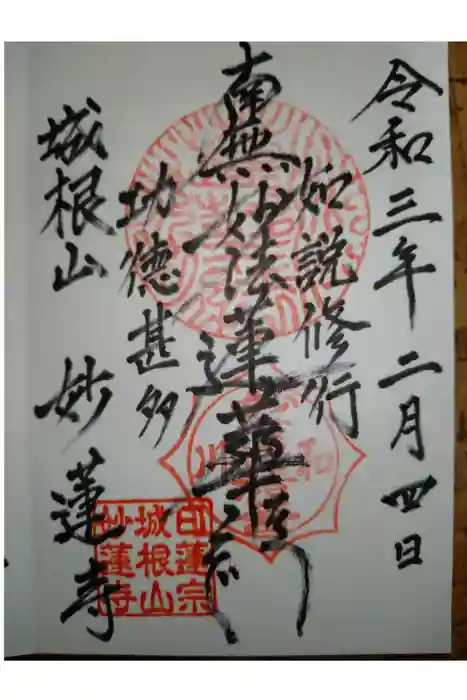 令和三年二月四日
如説修行
南無妙法蓮華経
功徳甚多
城根山 妙蓮寺
日蓮宗
城根山
妙蓮寺